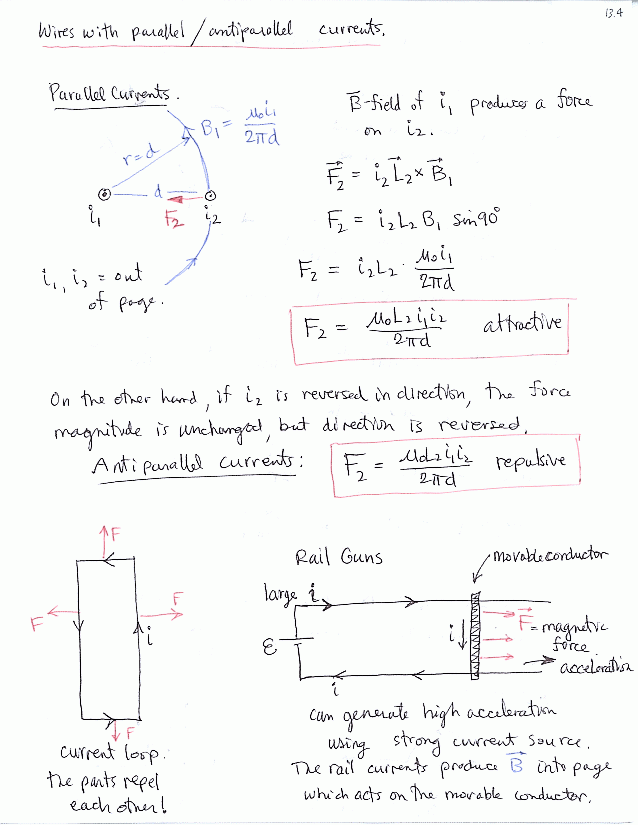 13.4
Wires with parallel / antiparallel currents.
Parallel Currents.
B₁ = μ₀i₁ / 2πd
r = d
d
i₁
F₂
i₂
i₁, i₂ = out
of page.
B⃗-field of i₁ produces a force
on i₂.
F⃗₂ = i₂L⃗₂ × B⃗₁
F₂ = i₂L₂B₁ sin90°
F₂ = i₂L₂ · μ₀i₁ / 2πd
F₂ = μ₀L₂i₁i₂ / 2πd attractive
On the other hand, if i₂ is reversed in direction, the force
magnitude is unchanged, but direction is reversed.
Antiparallel currents:
F₂ = μ₀L₂i₁i₂ / 2πd repulsive
F
F
F
i
F
current loop.
the parts repel
each other!
Rail Guns
movable conductor
large i
ε
i
i
F⃗ = magnetic
force
acceleration
can generate high acceleration
using strong current source.
The rail currents produce B⃗ into page
which acts on the movable conductor.